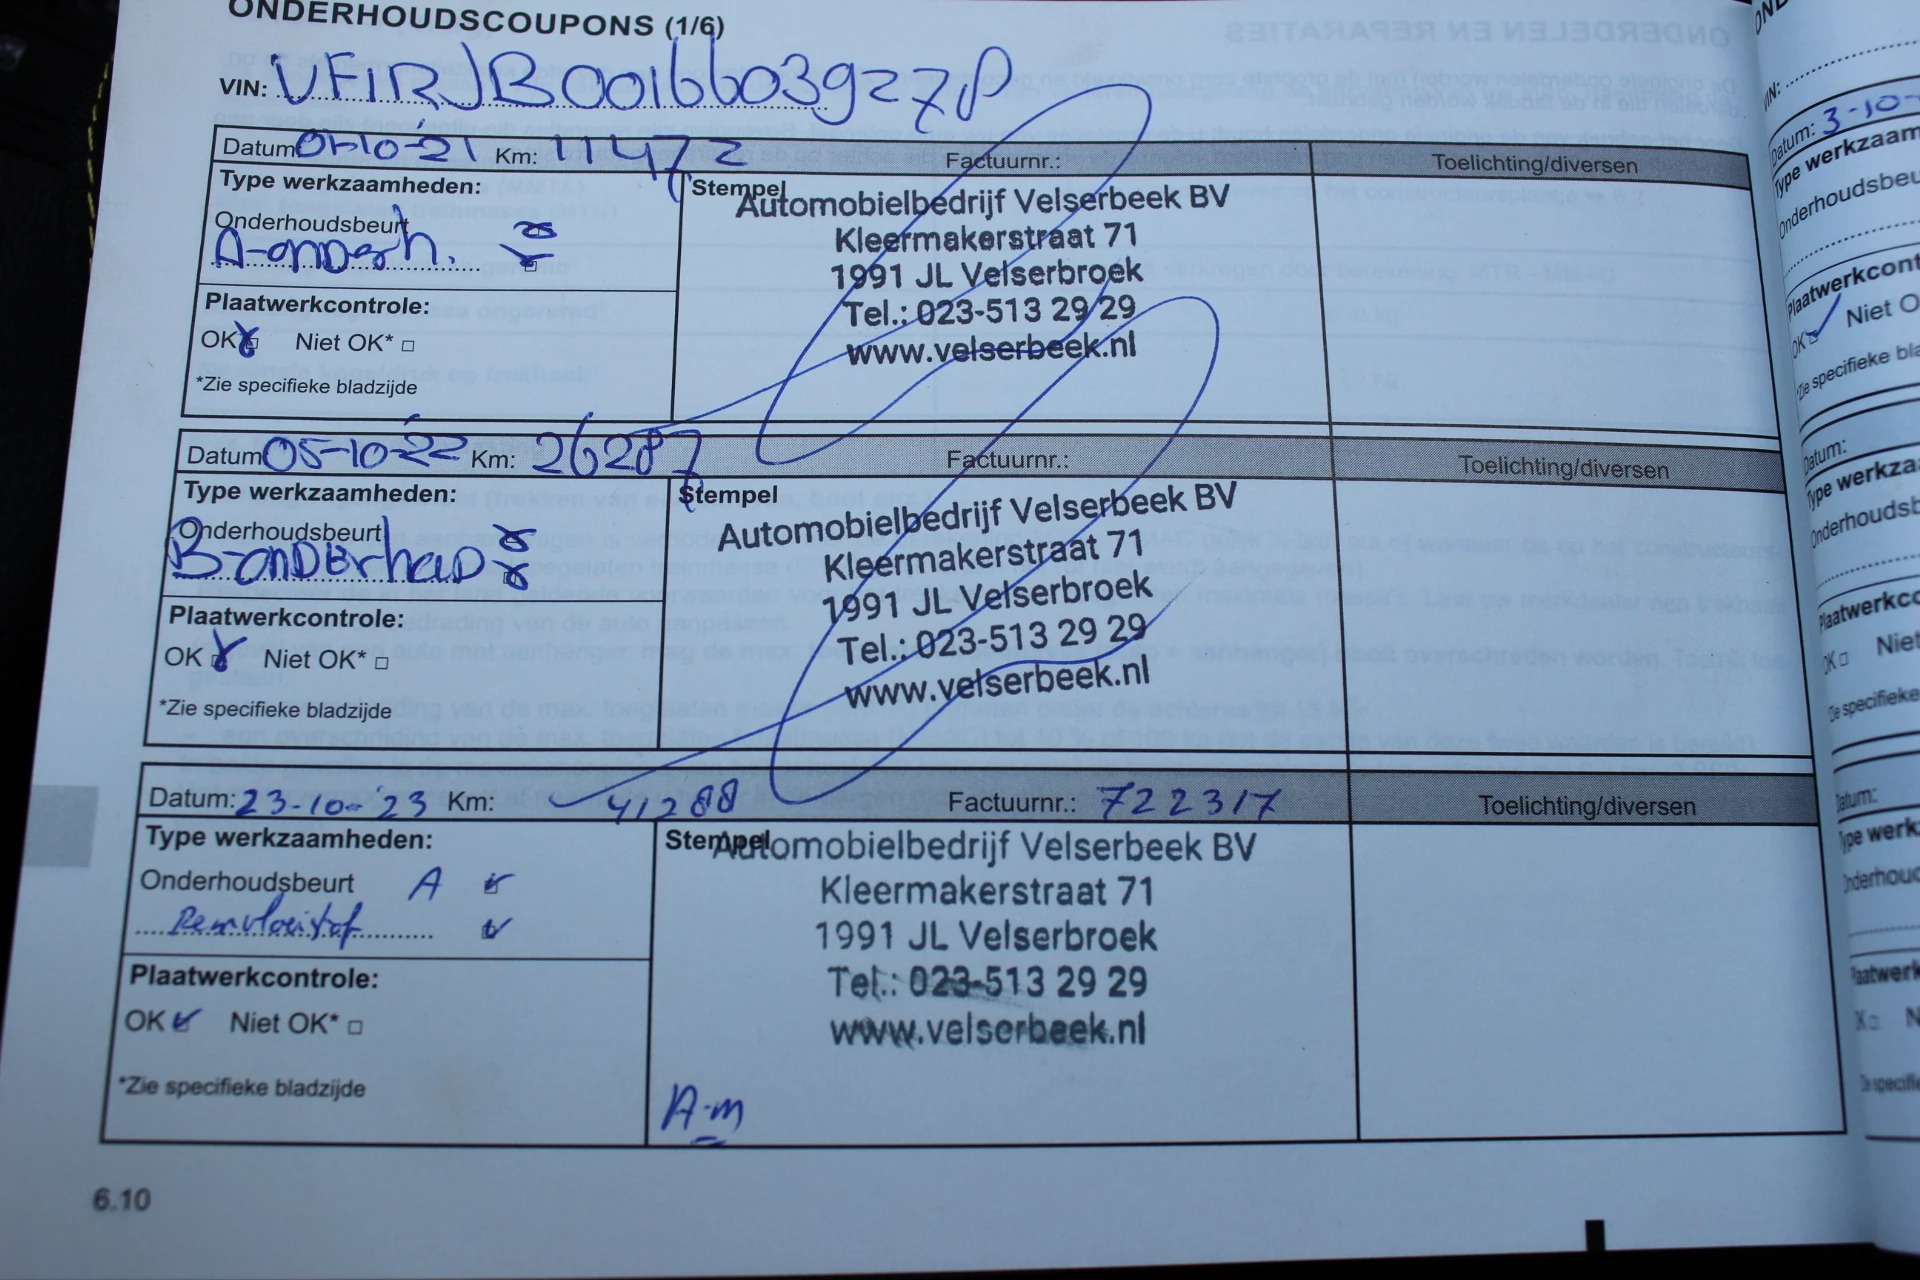 ONDERHOUDSCOUPONS (1/6)
VIN:
Datum: 01-10-'21 Km: Factuurnr.: Toelichting/diversen
Type werkzaamheden: Stempel
Onderhoudsbeurt
A-onderh.
Automobielbedrijf Velserbeek BV
Kleermakerstraat 71
1991 JL Velserbroek
Tel.: 023-513 29 29
www.velserbeek.nl
Plaatwerkcontrole:
OK Niet OK*
*Zie specifieke bladzijde
Datum 05-10-'22 Km: 26287 Factuurnr.: Toelichting/diversen
Type werkzaamheden: Stempel
Onderhoudsbeurt
B-onderhoud
Automobielbedrijf Velserbeek BV
Kleermakerstraat 71
1991 JL Velserbroek
Tel.: 023-513 29 29
www.velserbeek.nl
Plaatwerkcontrole:
OK Niet OK*
*Zie specifieke bladzijde
Datum: 23-10-'23 Km: 41288 Factuurnr.: 722317 Toelichting/diversen
Type werkzaamheden: Stempel
Onderhoudsbeurt A
Remvloeistof
Automobielbedrijf Velserbeek BV
Kleermakerstraat 71
1991 JL Velserbroek
Tel.: 023-513 29 29
www.velserbeek.nl
Plaatwerkcontrole:
OK Niet OK*
*Zie specifieke bladzijde
A-m
6.10
VIN:
Datum: 3-10-
Type werkzaam
Onderhoudsbeu
Plaatwerkcont
OK Niet O
Datum:
Type werkza
Onderhoudsb
Plaatwerkco
Niet